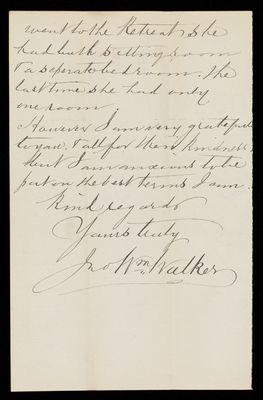 went to the Retreat she
had both sitting room
& a seperate bed room. The
last time she had only
one room.
However I am very grateful
to you & all for their kindness,
but I am anxious to be
put on the best terms I can.
Kind regards
Yours truly
Jno Wm. Walker